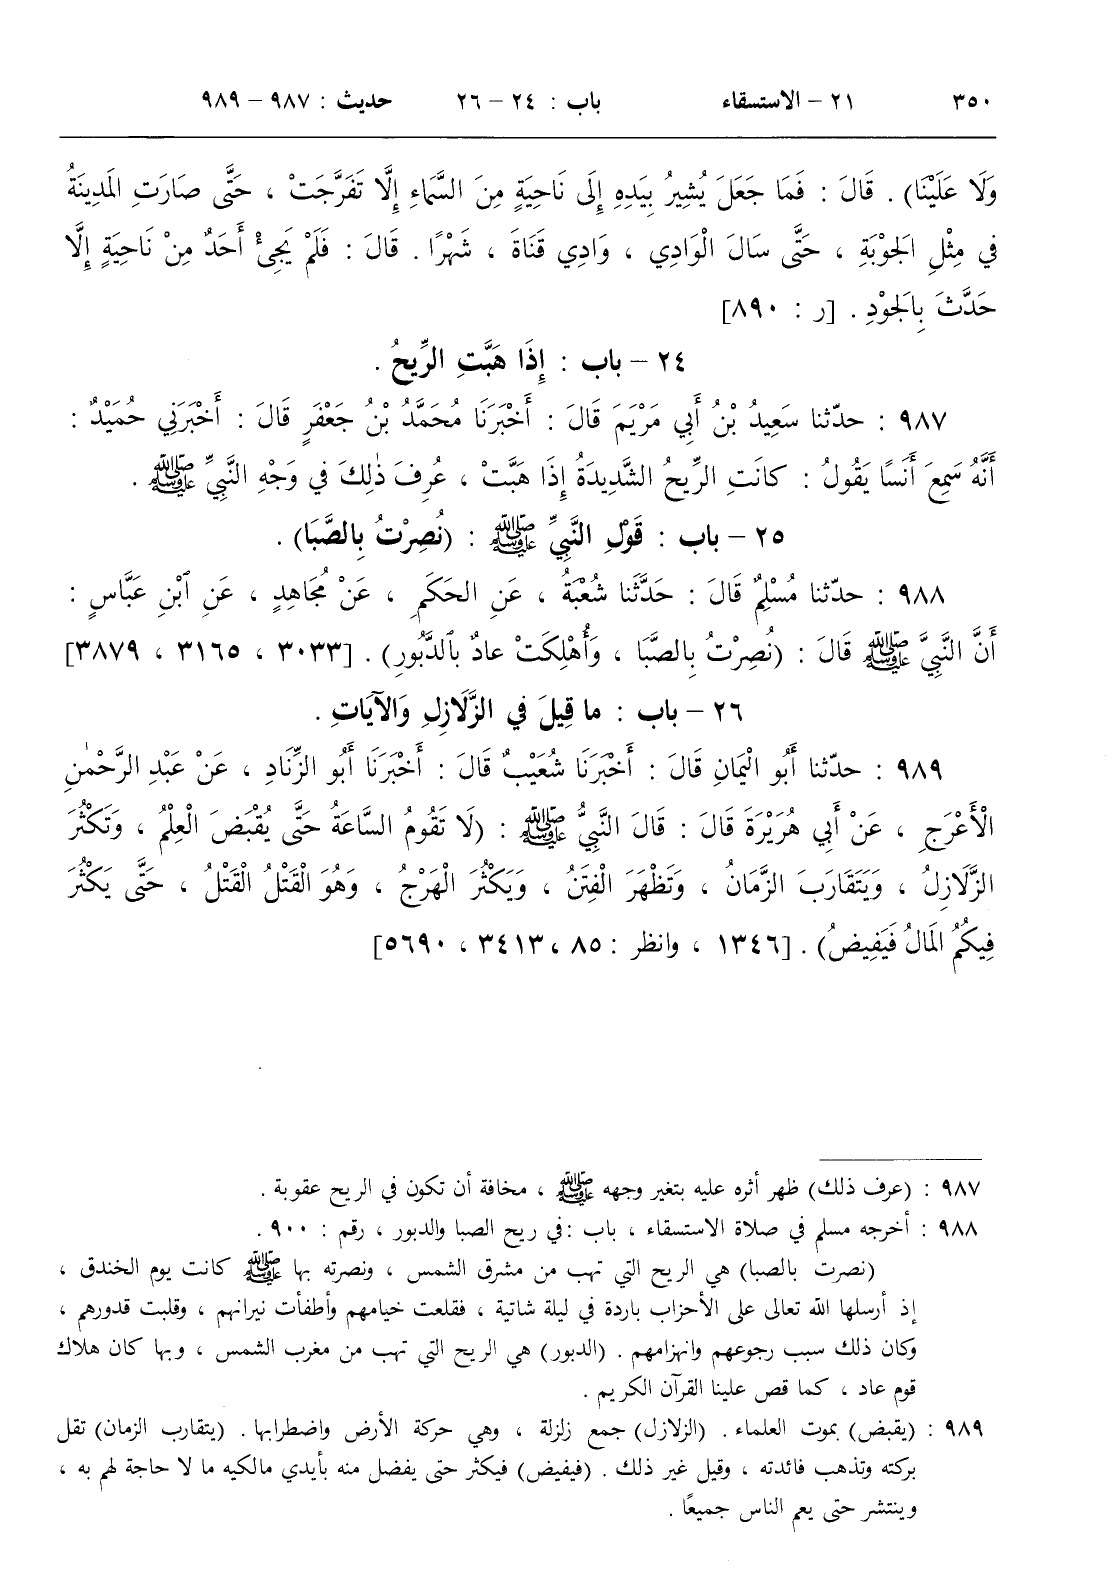 ٣٥٠ ٢١ – الاستسقاء باب : ٢٤ – ٢٦ حديث : ٩٨٧ – ٩٨٩
وَلَا عَلَيْنَا) . قَالَ : فَمَا جَعَلَ يُشِيرُ بِيَدِهِ إِلَى نَاحِيَةٍ مِنَ السَّمَاءِ إِلَّا تَفَرَّجَتْ ، حَتَّى صَارَتِ المَدِينَةُ
في مِثْلِ الجَوْبَةِ ، حَتَّى سَالَ الْوَادِي ، وَادِي قَنَاةَ ، شَهْرًا . قَالَ : فَلَمْ يَجِئْ أَحَدٌ مِنْ نَاحِيَةٍ إِلَّا
حَدَّثَ بِالجَوْدِ . [ر : ٨٩٠]
٢٤ – باب : إِذَا هَبَّتِ الرِّيحُ .
٩٨٧ : حدّثنا سَعِيدُ بْنُ أَبِي مَرْيَمَ قَالَ : أَخْبَرَنَا مُحَمَّدُ بْنُ جَعْفَرٍ قَالَ : أَخْبَرَنِي حُمَيْدٌ :
أَنَّهُ سَمِعَ أَنَسًا يَقُولُ : كانَتِ الرِّيحُ الشَّدِيدَةُ إِذَا هَبَّتْ ، عُرِفَ ذٰلِكَ في وَجْهِ النَّبِيِّ ﷺ .
٢٥ – باب : قَوْلِ النَّبِيِّ ﷺ : (نُصِرْتُ بِالصَّبَا) .
٩٨٨ : حدّثنا مُسْلِمٌ قَالَ : حَدَّثَنَا شُعْبَةُ ، عَنِ الحَكَمِ ، عَنْ مُجَاهِدٍ ، عَنِ ٱبْنِ عَبَّاسٍ :
أَنَّ النَّبِيَّ ﷺ قَالَ : (نُصِرْتُ بِالصَّبَا ، وَأُهْلِكَتْ عادٌ بِٱلدَّبُورِ) . [٣٠٣٣ ، ٣١٦٥ ، ٣٨٧٩]
٢٦ – باب : ما قِيلَ في الزَّلَازِلِ وَالآيَاتِ .
٩٨٩ : حدّثنا أَبُو الْيَمَانِ قَالَ : أَخْبَرَنَا شُعَيْبٌ قَالَ : أَخْبَرَنَا أَبُو الزِّنَادِ ، عَنْ عَبْدِ الرَّحْمٰنِ
الْأَعْرَجِ ، عَنْ أَبِي هُرَيْرَةَ قَالَ : قَالَ النَّبِيُّ ﷺ : (لَا تَقُومُ السَّاعَةُ حَتَّى يُقْبَضَ الْعِلْمُ ، وَتَكْثُرَ
الزَّلَازِلُ ، وَيَتَقَارَبَ الزَّمَانُ ، وَتَظْهَرَ الْفِتَنُ ، وَيَكْثُرَ الْهَرْجُ ، وَهُوَ الْقَتْلُ الْقَتْلُ ، حَتَّى يَكْثُرَ
فِيكُمُ المَالُ فَيَفِيضُ) . [١٣٤٦ ، وانظر : ٨٥ ، ٣٤١٣ ، ٥٦٩٠]
٩٨٧ : (عرف ذلك) ظهر أثره عليه بتغير وجهه ﷺ ، مخافة أن تكون في الريح عقوبة .
٩٨٨ : أخرجه مسلم في صلاة الاستسقاء ، باب : في ريح الصبا والدبور ، رقم : ٩٠٠ .
(نصرت بالصبا) هي الريح التي تهب من مشرق الشمس ، ونصرته بها ﷺ كانت يوم الخندق ،
إذ أرسلها الله تعالى على الأحزاب باردة في ليلة شاتية ، فقلعت خيامهم وأطفأت نيرانهم ، وقلبت قدورهم ،
وكان ذلك سبب رجوعهم وانهزامهم . (الدبور) هي الريح التي تهب من مغرب الشمس ، وبها كان هلاك
قوم عاد ، كما قص علينا القرآن الكريم .
٩٨٩ : (يقبض) بموت العلماء . (الزلازل) جمع زلزلة ، وهي حركة الأرض واضطرابها . (يتقارب الزمان) تقل
بركته وتذهب فائدته ، وقيل غير ذلك . (فيفيض) فيكثر حتى يفضل منه بأيدي مالكيه ما لا حاجة لهم به ،
وينتشر حتى يعم الناس جميعًا .